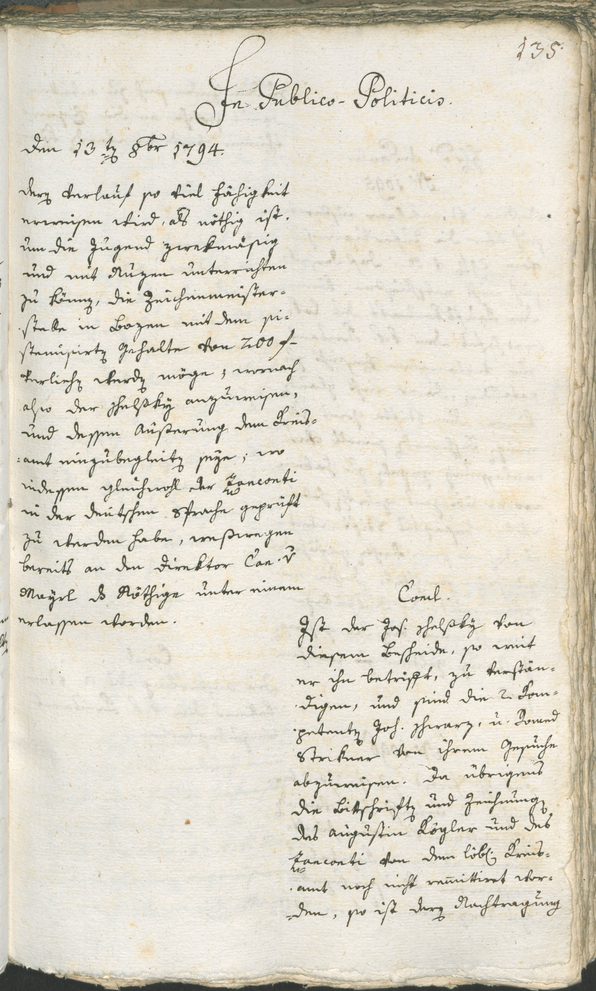 135.
In Publico-Politicis.
den 13tn 8br 1794.
dern Verlauf so viel Fähigkeit
erweisen wird, als nöthig ist.
um die Jugend zwekmäsig
und mit Nuzen unterrichten
zu könn, die Zeichenmeister-
stelle in Bozen mit dem si-
stemisirtn Gehalte von 200 f
verliehn werdn möge; wornach
also der anzuweisen,
und dessen Äußerung dem Kreis-
amt einzubegleitn seye; wo
indessen gleichwoll der Zanconti
in der deutschen Sprache geprüft
zu werden habe, weßwegen
bereits an den Direktor Can. v
Mayrl ds Nöthige unter einem
erlassen worden.
Concl.
Ist der Jos. von
diesem Bescheide, so weit
er ihn betrifft, zu verstän-
digen, und sind die 2. Kom-
petentn Joh. Schwarz, u. Romed
Strikner von ihrem Gesuche
abzuweisen. Da übrigens
die Bittschriftn und Zeichnungn
des Augustin Kögler und des
Zanconti von dem löbl. Kreis-
amt noch nicht remittiret wor-
den, so ist dern Nachtragung